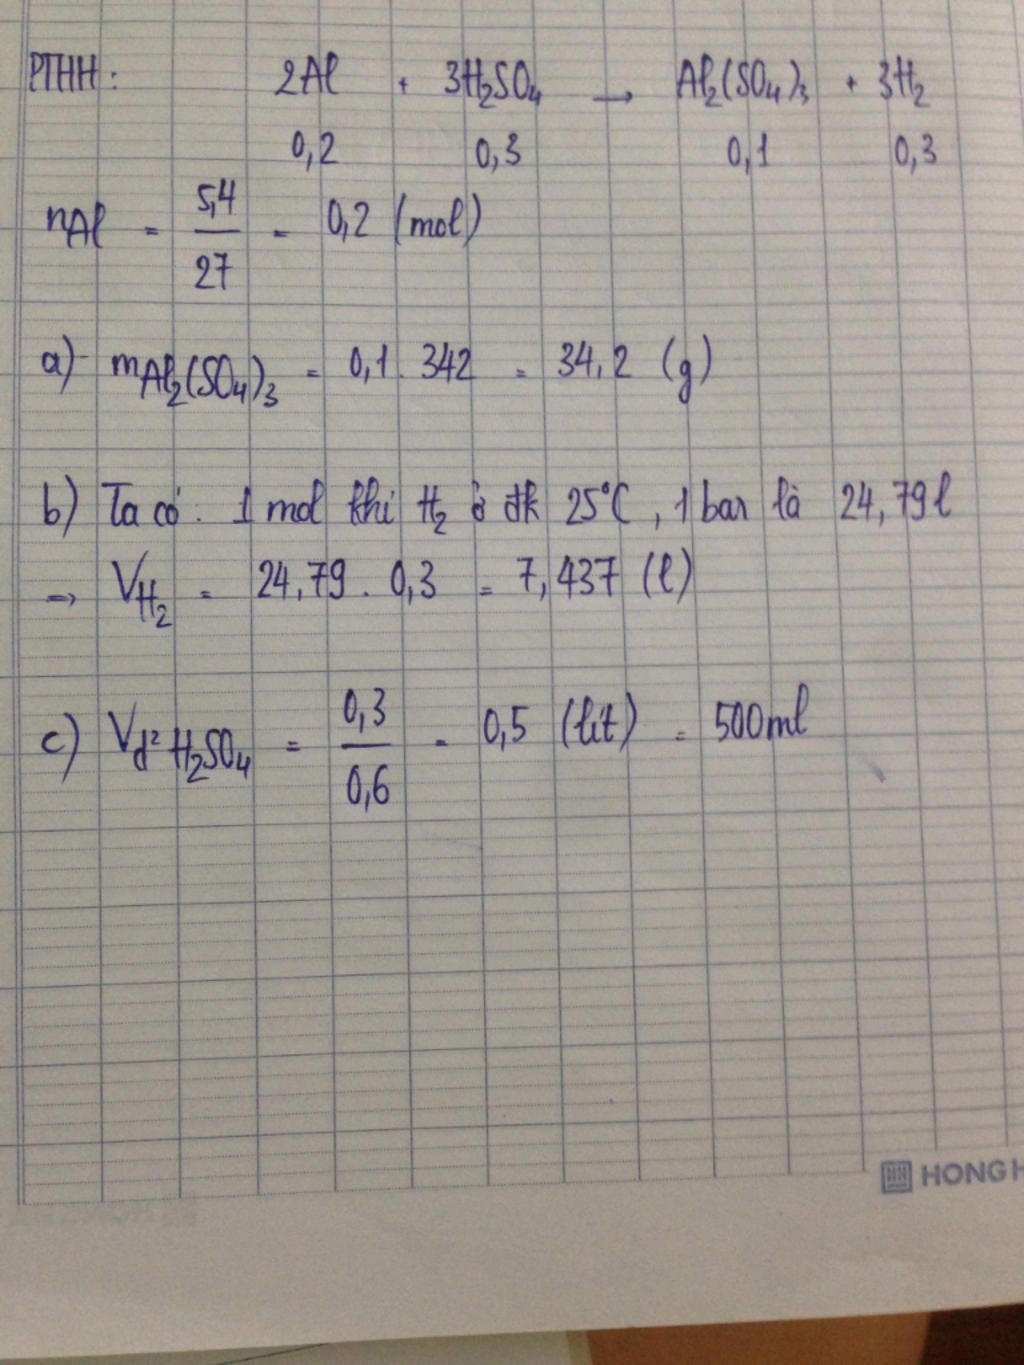 PTHH: 2Al + 3H₂SO₄ → Al₂(SO₄)₃ + 3H₂
0,2 0,3 0,1 0,3
nAl = 5,4/27 = 0,2 (mol)
a) mAl₂(SO₄)₃ = 0,1 . 342 = 34,2 (g)
b) Ta có : 1 mol khí H₂ ở đk 25°C, 1 bar là 24,79 l
→ VH₂ = 24,79 . 0,3 = 7,437 (l)
c) Vd² H₂SO₄ = 0,3/0,6 = 0,5 (lít) = 500ml
HONG H